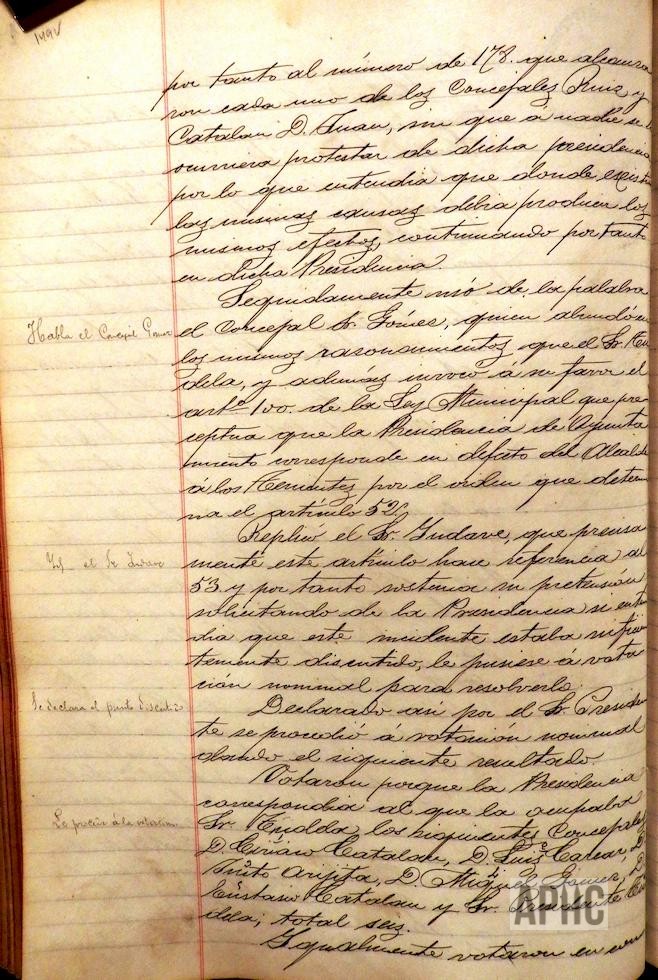 149V
por tanto al número de 178. que alcanza
ron cada uno de los Concejales Ruiz y
Catalan D. Juan, sin que a nadie se le
ocurriera protestar de dicha presidencia
por lo que entendia que donde existen
las mismas causas debia producir los
mismos efectos, continuando por tanto
en dicha Presidencia.
Seguidamente usó de la palabra
Habla el Concejal Gomez
el Concejal Sr. Gómes, quien abundó en
los mismos razonamientos que el Sr.
dela, y además invocó á su favor el
artº 100. de la Ley Municipal que pre
ceptua que la Presidencia de Ayunta
miento corresponde en defecto del Alcalde
á los Tenientes por el orden que determi
na el artículo 52.
Replicó el Sr. Yudave, que precisa
Yd el Sr
mente este artículo hace referencia al
53 y por tanto sostenia su pretensión
solicitando de la Presidencia si enten
dia que este incidente estaba suficien
temente discutido, le pusiese á vota
ción nominal para resolverlo.
Se declara el punto discutido
Declarado así por el Sr. Presiden
te se procedió á votación nominal
dando el siguiente resultado.
Votaron porque la Presidencia
correspondia al que la ocupaba
Se procede á la votacion
Sr. los siguientes Concejales
D. Ciriaco Catalan, D. Luis D.
Justo Arijita, D. Miguel Gomez, D.
Eustasio Catalan y Sr. Presidente
dela; total seis.
Ygualmente votaron en con
APHC